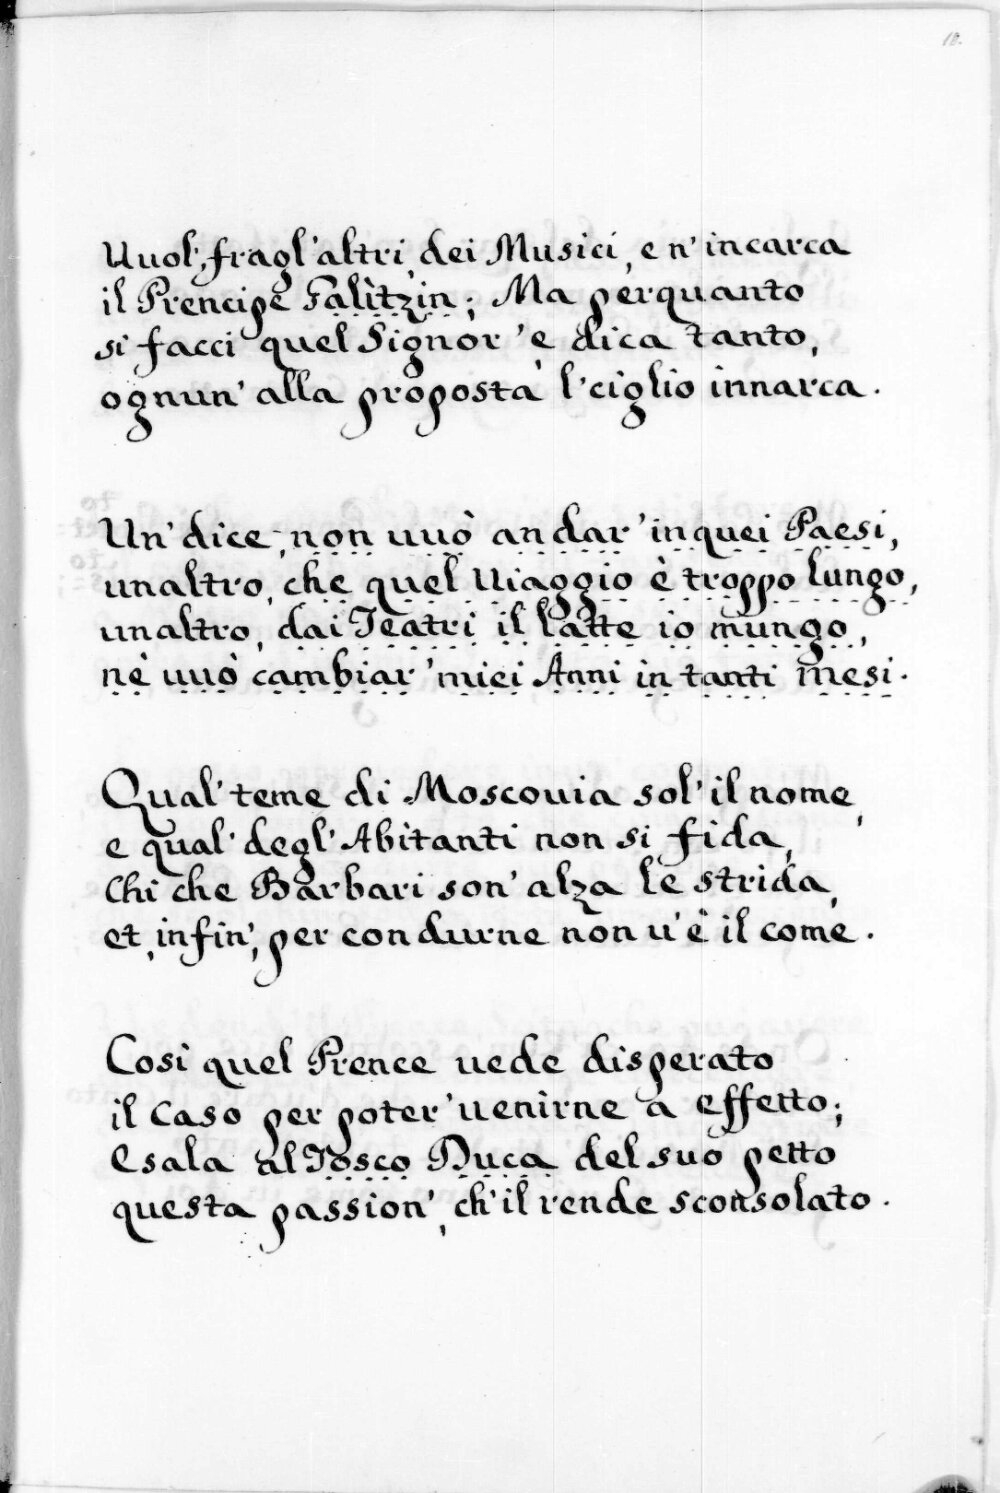 10.
Uuol', fragl'altri, dei Musici, e n'incarca
il Prencipe Galìtzin; Ma perquanto
si facci quel Signor' e dica tanto,
ognun' alla proposta l'ciglio innarca.
Un' dice, non uuò andar' in quei Paesi,
unaltro, che quel Uiaggio è troppo lungo,
unaltro, dai Teatri il latte io mungo,
nè uuò cambiar' miei Anni in tanti mesi.
Qual' teme di Moscouia sol' il nome,
e qual' degl' Abitanti non si fida,
Chi che Barbari son' alza le strida,
et, infin', per condurne non u'è il come.
Cosi quel Prence uede disperato
il Caso per poter' uenirne a effetto;
Esala al Tosco Duca del suo petto
questa passion', ch'il rende sconsolato.